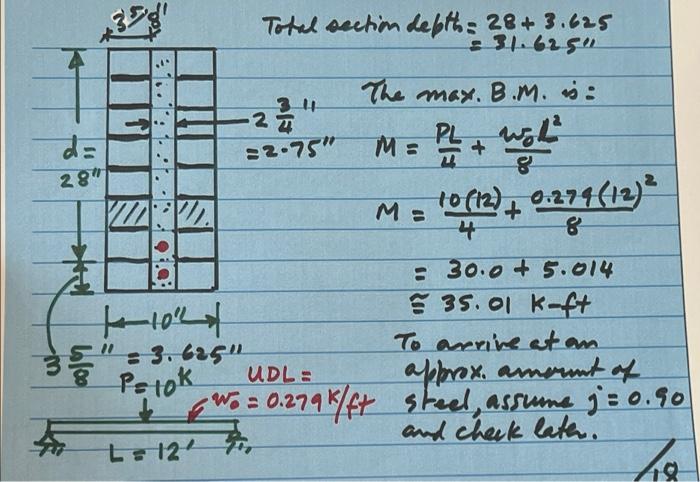 3 5/8"
Total section depth = 28 + 3.625
= 31.625"
The max. B.M. is:
2 3/4"
= 2.75"
M = PL/4 + w₀L²/8
d =
28"
M = 10(12)/4 + 0.279(12)²/8
= 30.0 + 5.014
≅ 35.01 K-ft
10"
3 5/8" = 3.625"
P = 10ᴷ
UDL =
w₀ = 0.279 K/ft
L = 12'
To arrive at an
approx. amount of
steel, assume j = 0.90
and check later.
/18